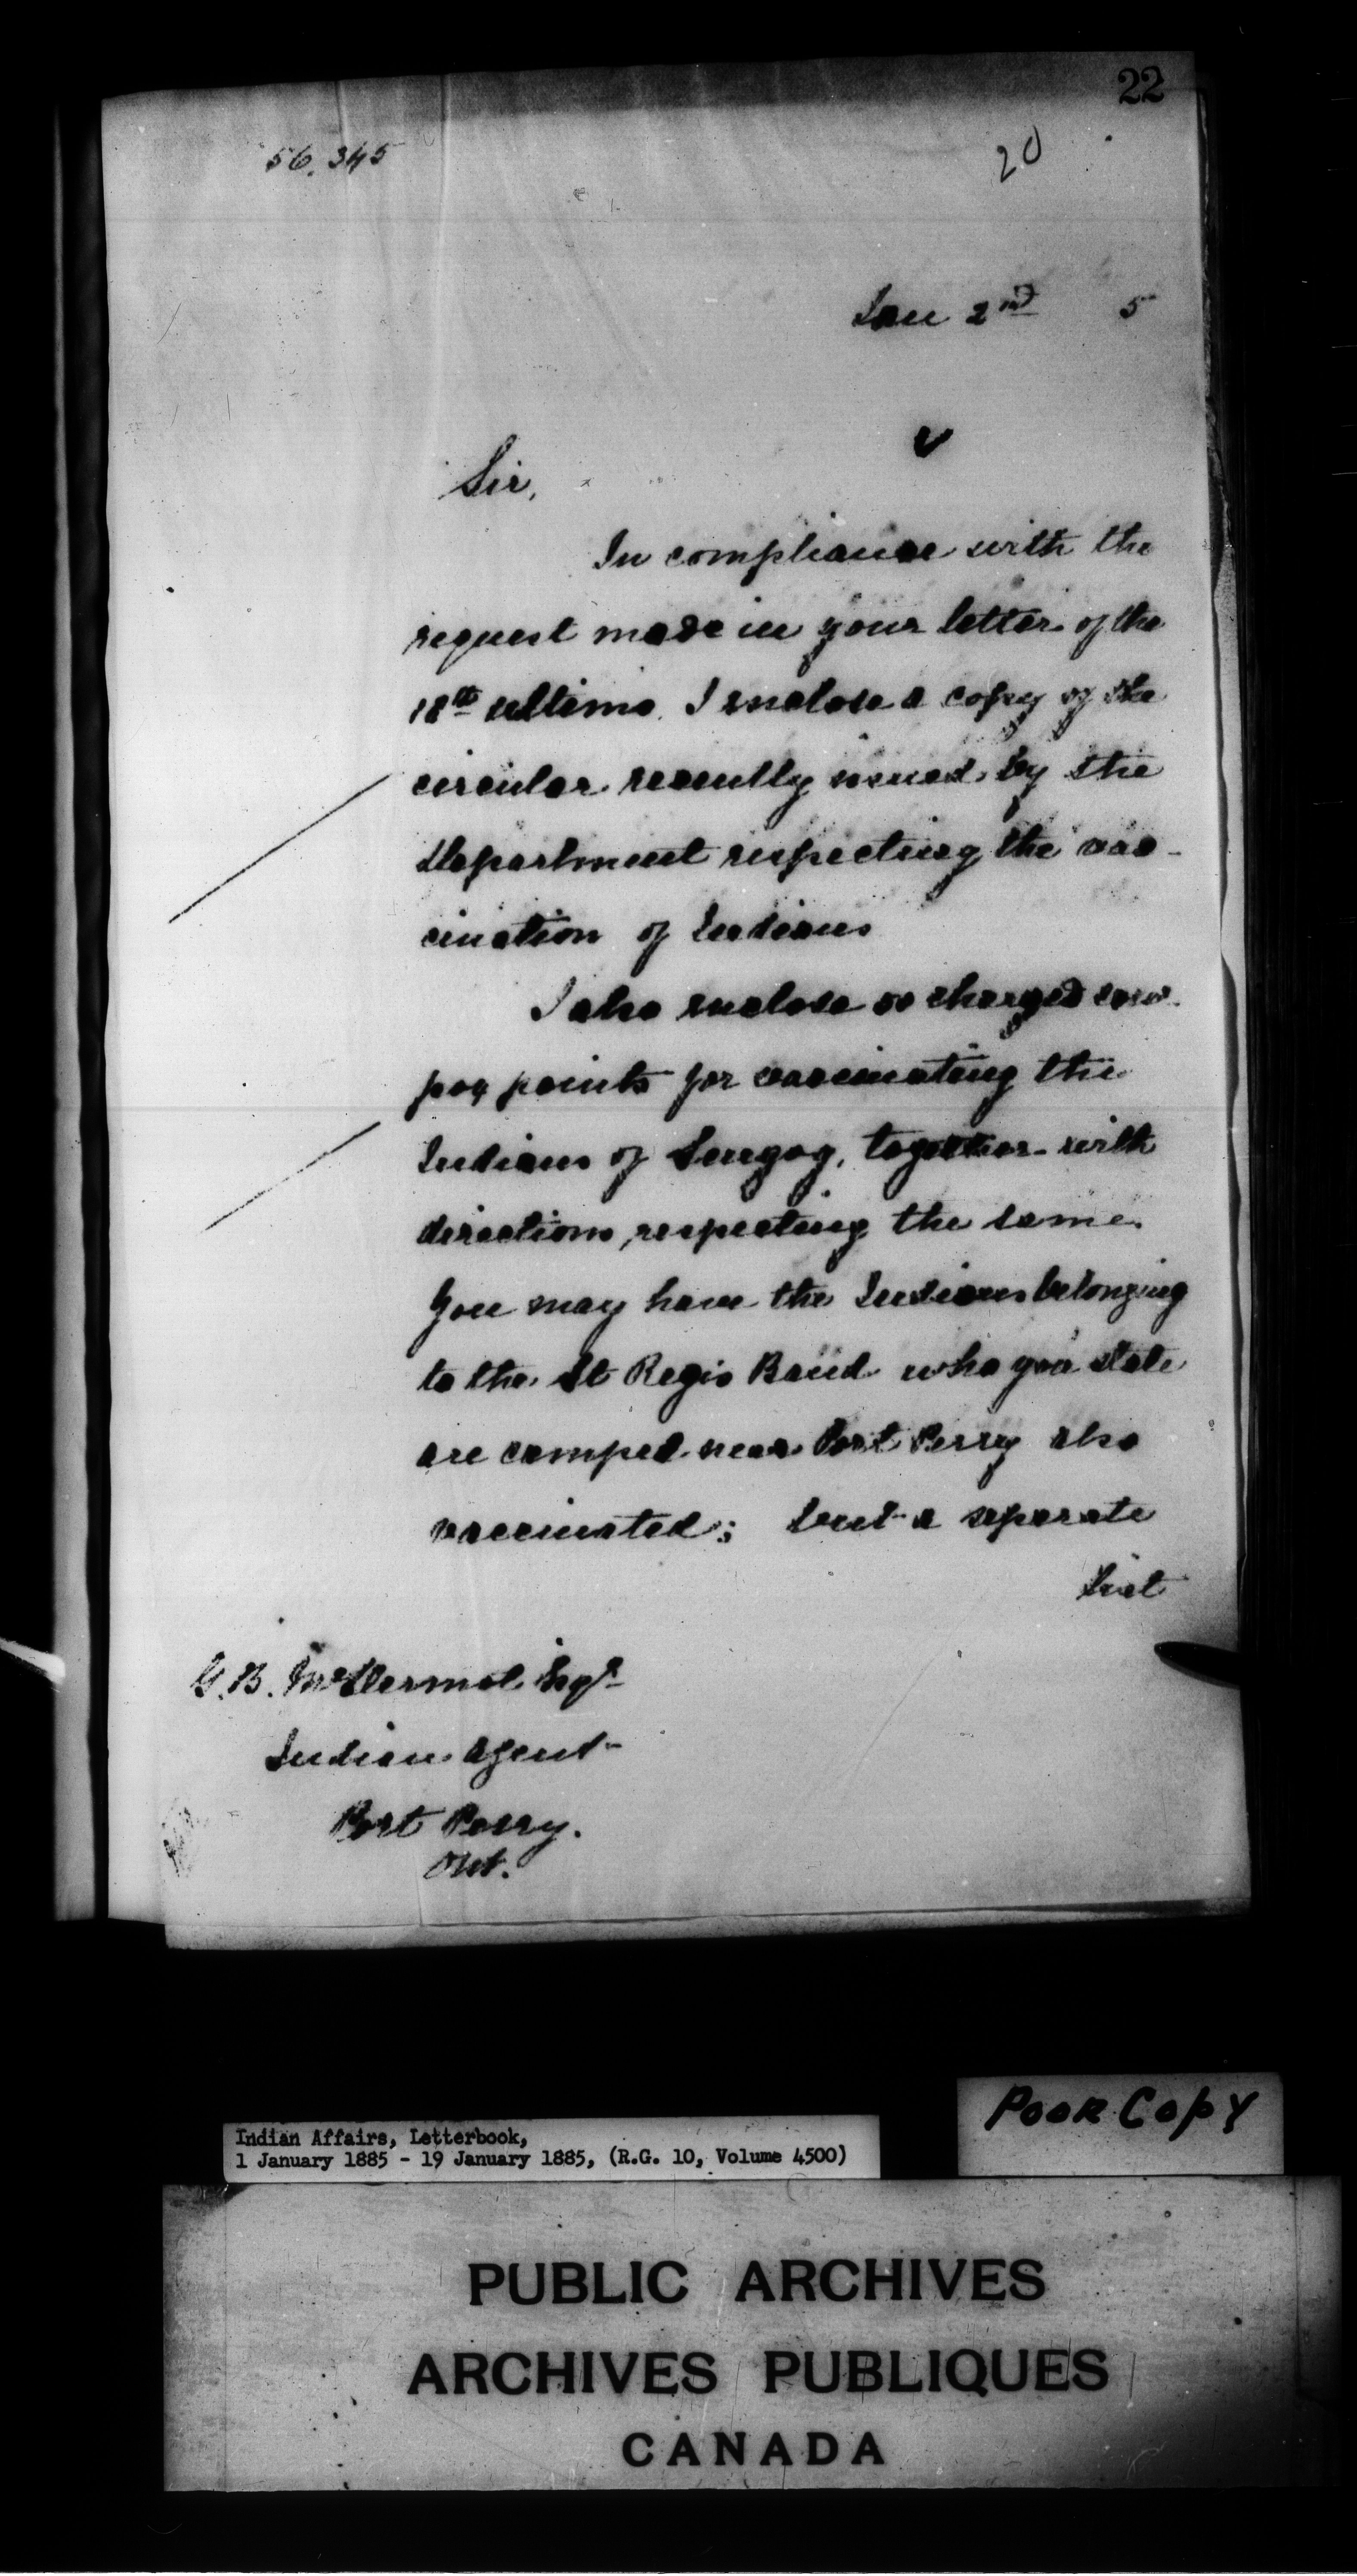 22
56.345
20
Jan 2nd 5
Sir,
In compliance with the
request made in your letter of the
18th ultimo. I enclose a copy of the
circular recently issued by the
Department respecting the vac-
cination of Indians
I also enclose charged cow-
pox points for vaccinating the
Indians of Scugog, together with
directions, respecting the same.
You may have the Indians belonging
to the St Regis Band who you state
are camped near Port Perry also
vaccinated; but a separate
list
G.B. McDermot Esqr
Indian Agent
Port Perry.
Ont.
Poor Copy
Indian Affairs, Letterbook,
1 January 1885 - 19 January 1885, (R.G. 10, Volume 4500)
PUBLIC ARCHIVES
ARCHIVES PUBLIQUES
CANADA